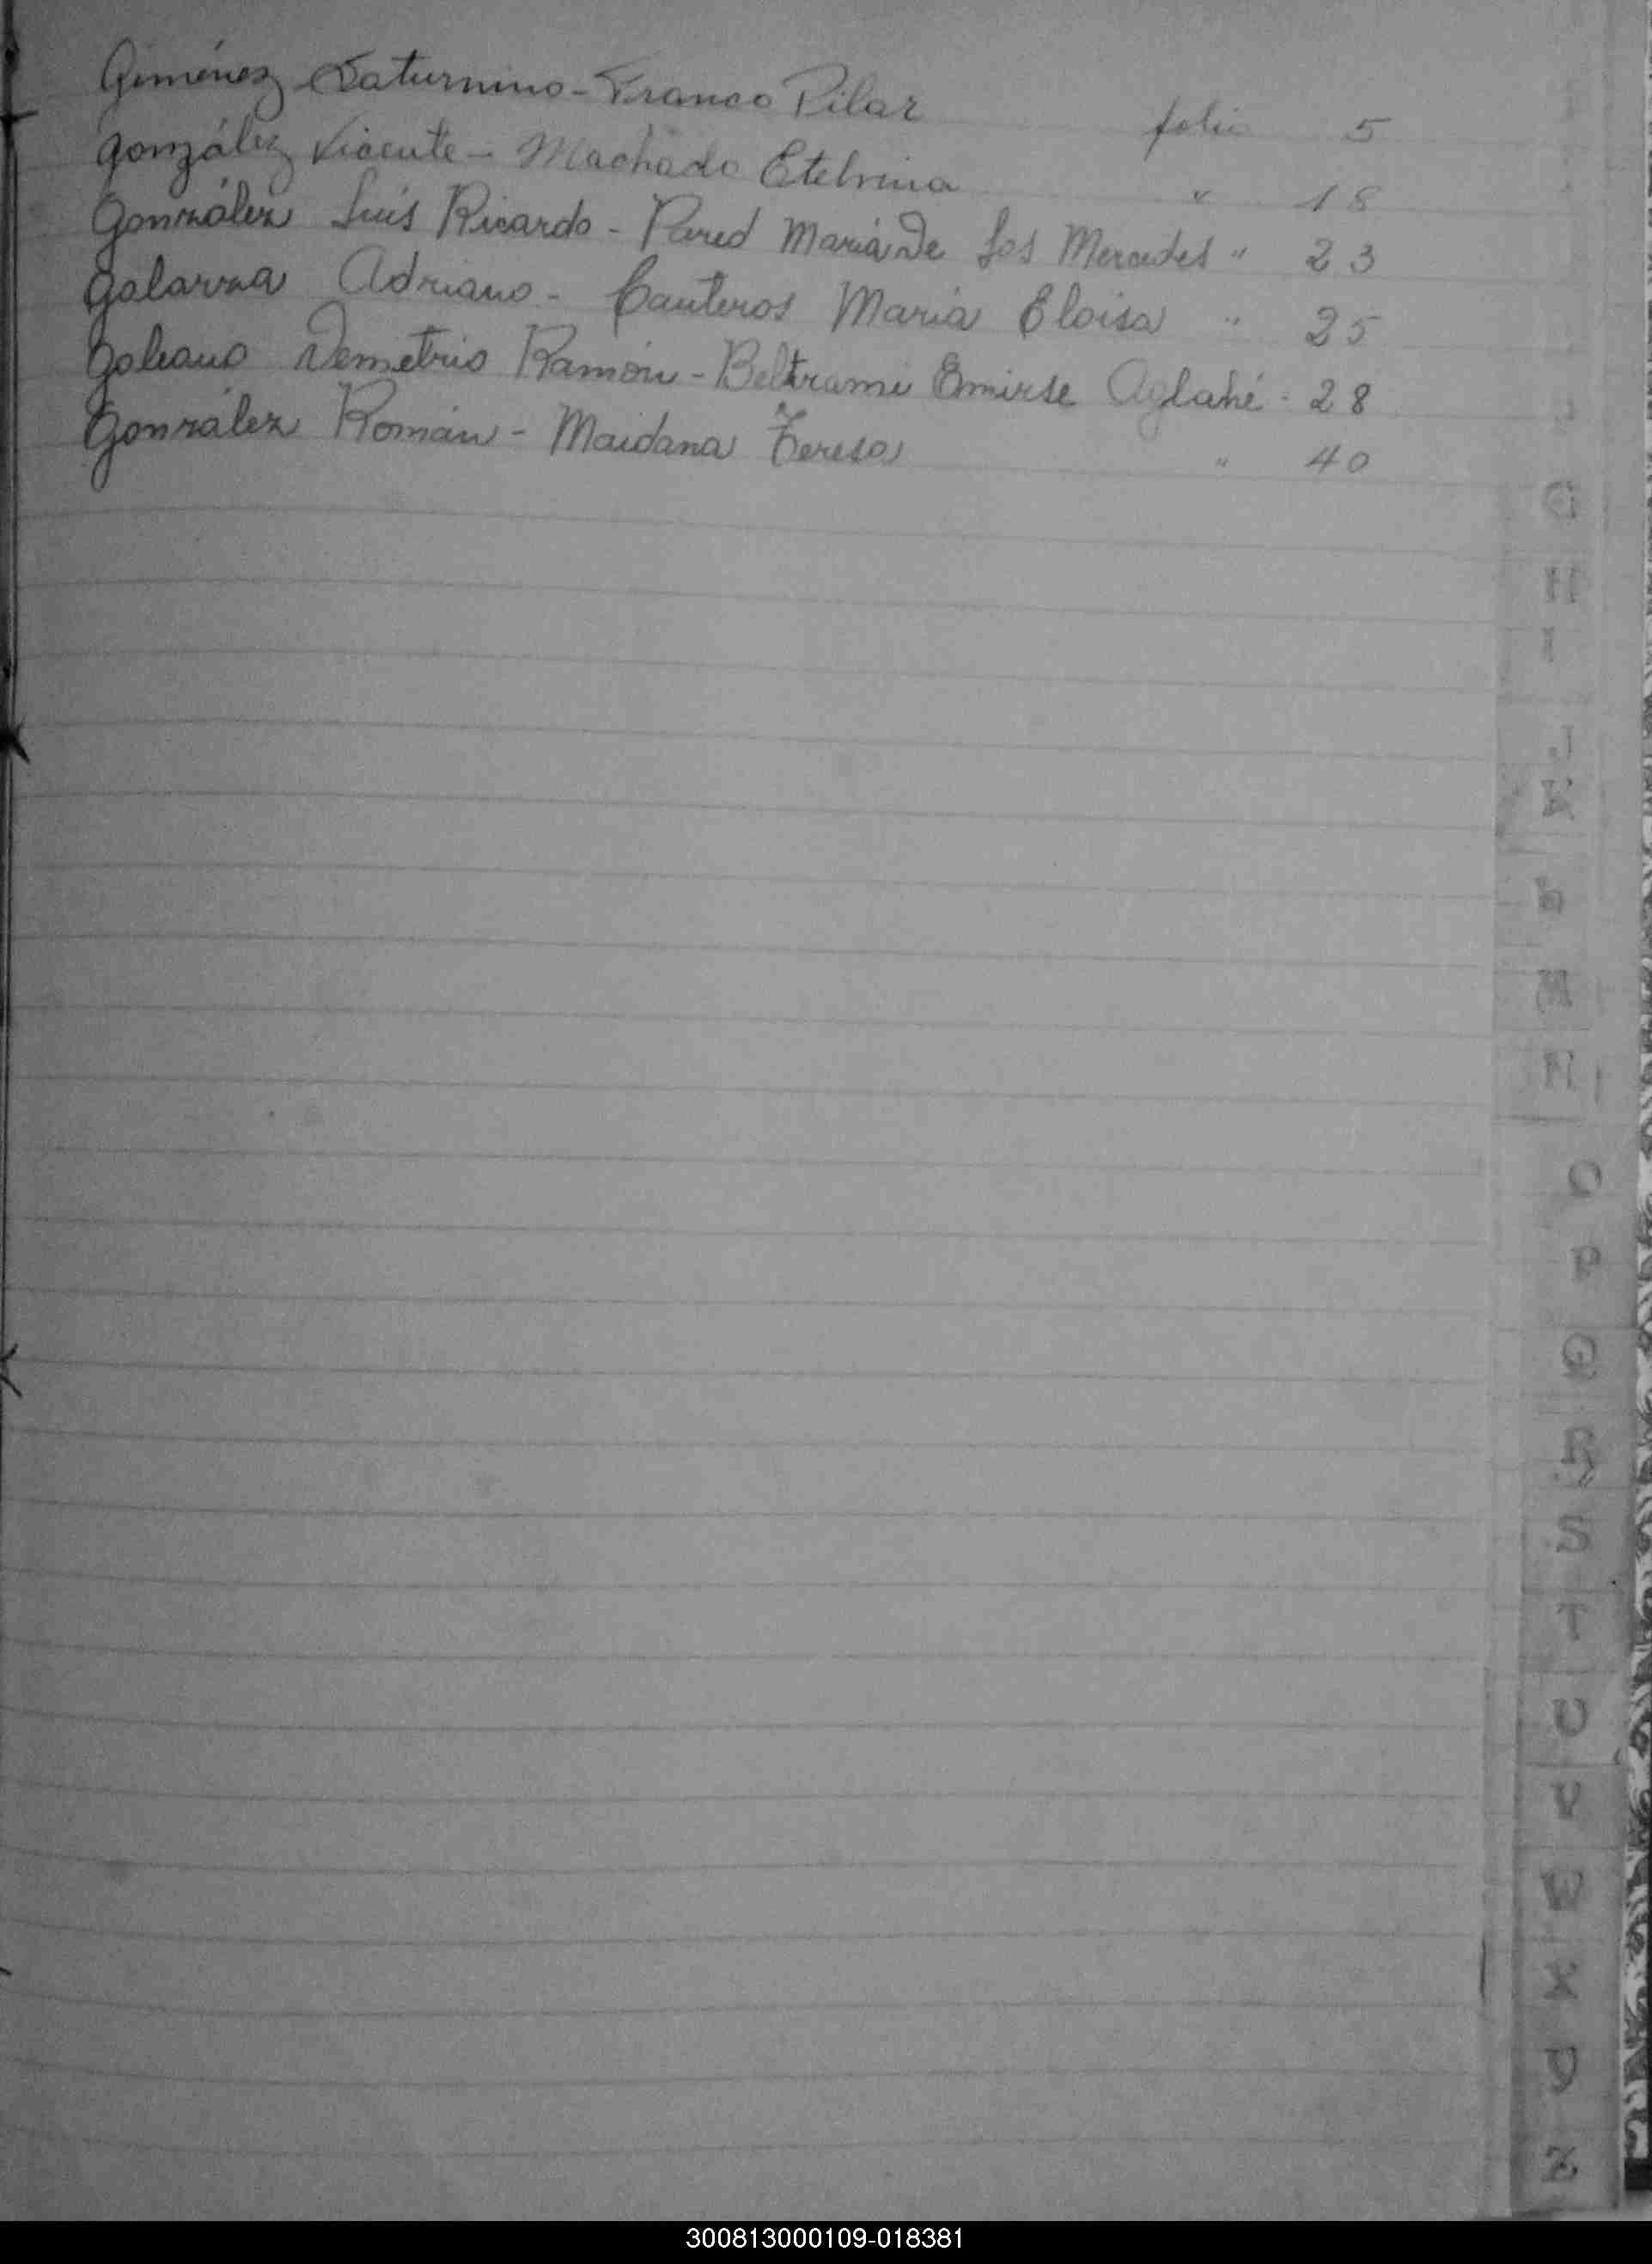 Giménez Saturnino - Franco Pilar folio 5
González Vicente - Machado Etelvina " 18
González Luis Ricardo - Pared María De Los Mercedes " 23
Galarza Adriano - Canteros María Eloisa " 25
Galeano Demetrio Ramón - Beltrami Emirse Aglahé - 28
González Román - Maidana Teresa " 40
G
H
I
J
K
L
M
N
O
P
Q
R
S
T
U
V
W
X
Y
Z
300813000109-018381